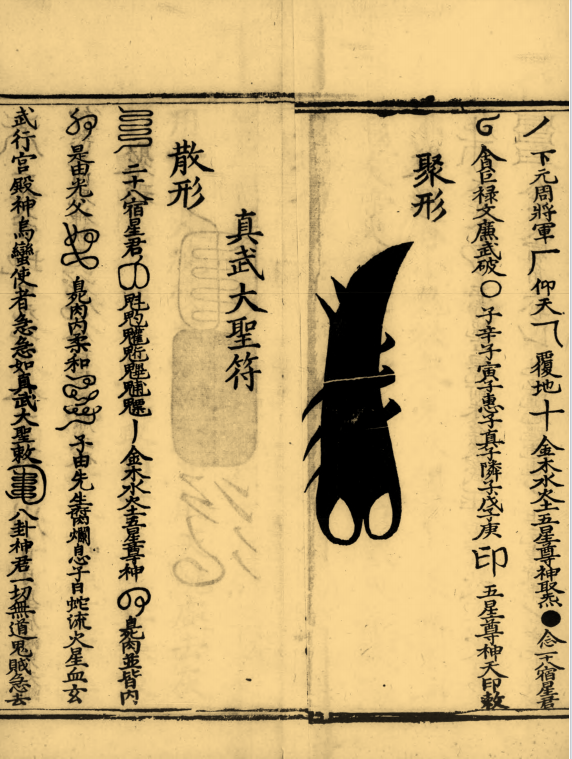 下元周將軍 仰天 覆地 十 金木水火土五星尊神取炁 念二十八宿星君
貪巨祿文廉武破 子辛子寅子惠子真子隣子戌子庚 印 五星尊神天印敕
聚形
真武大聖符
散形
二十八宿星君 魁 金木水火土五星尊神 肉並皆内
是由光父 肉内柔和 子由先生 爛息子白蛇流火星血玄
武行宮殿神烏蠻使者急急如真武大聖敕 八卦神君一切無道鬼賊急去